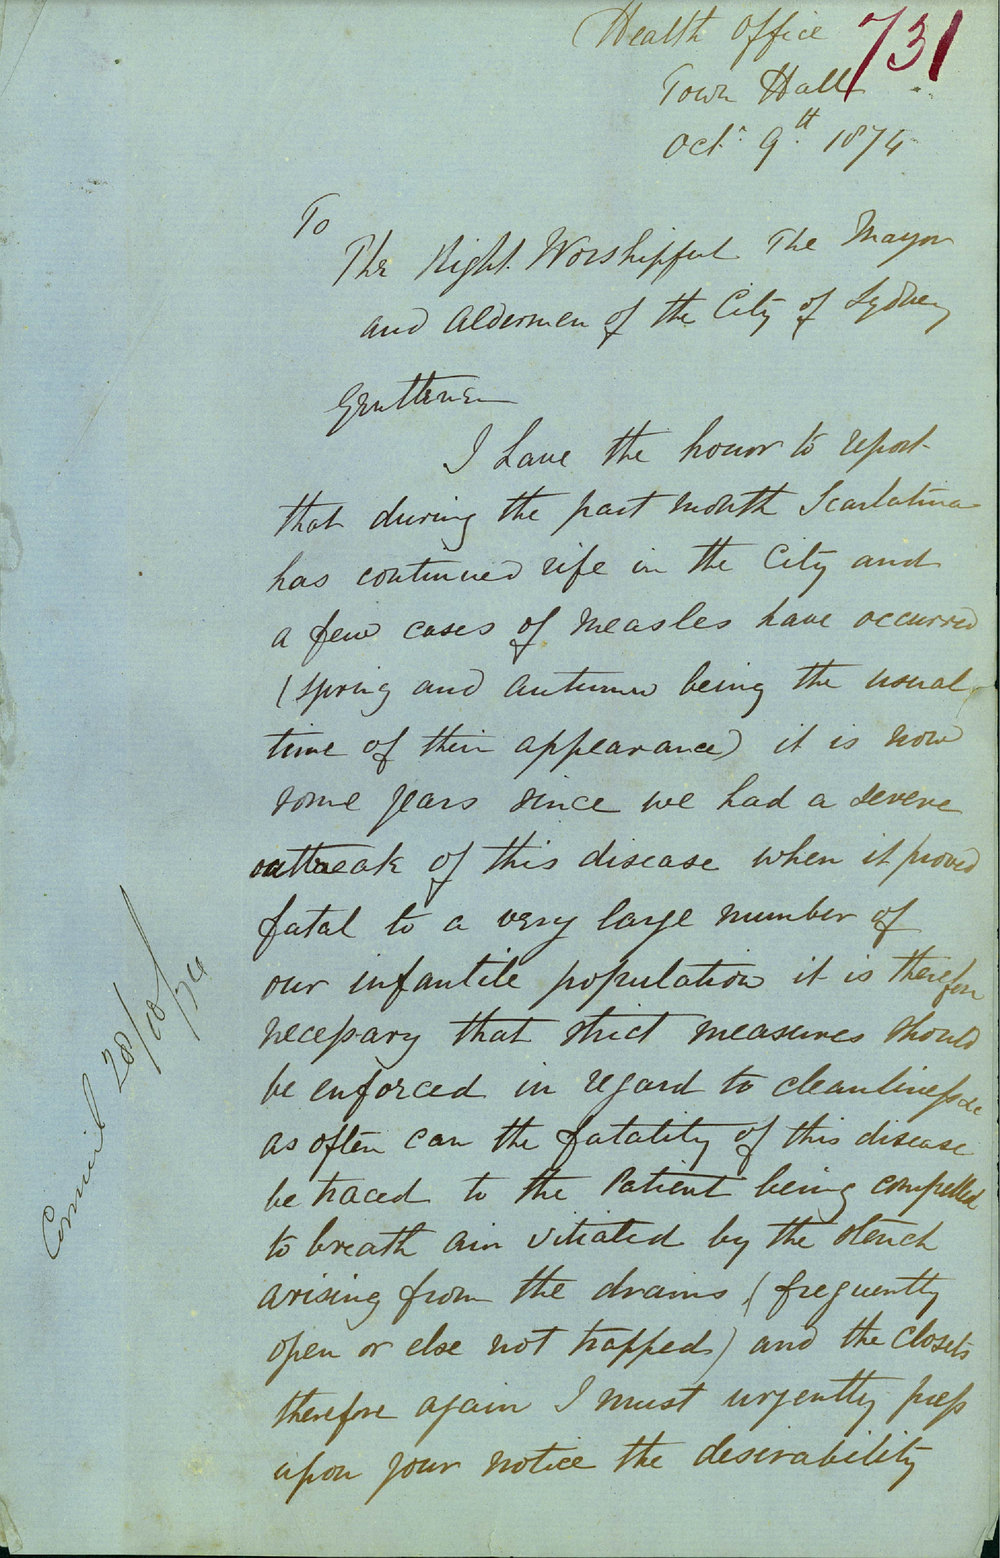 731
Health Office
Town Hall
Octr. 9th. 1874
To
The Right Worshipful The Mayor
and Aldermen of the City of Sydney
Gentlemen
I have the honor to report
that during the past month Scarlatina
has continued rife in the City and
a few cases of measles have occurred
(spring and autumn being the usual
time of their appearance) it is now
some years since we had a severe
outbreak of this disease when it proved
fatal to a very large number of
our infantile population it is therefore
necessary that strict measures should
be enforced in regard to cleanliness &c
as often can the fatality of this disease
be traced to the Patient being compelled
to breath air vitiated by the stench
arising from the drains (frequently
open or else not trapped) and the closets
therefore again I must urgently press
upon your notice the desirability
Council 20/10/74